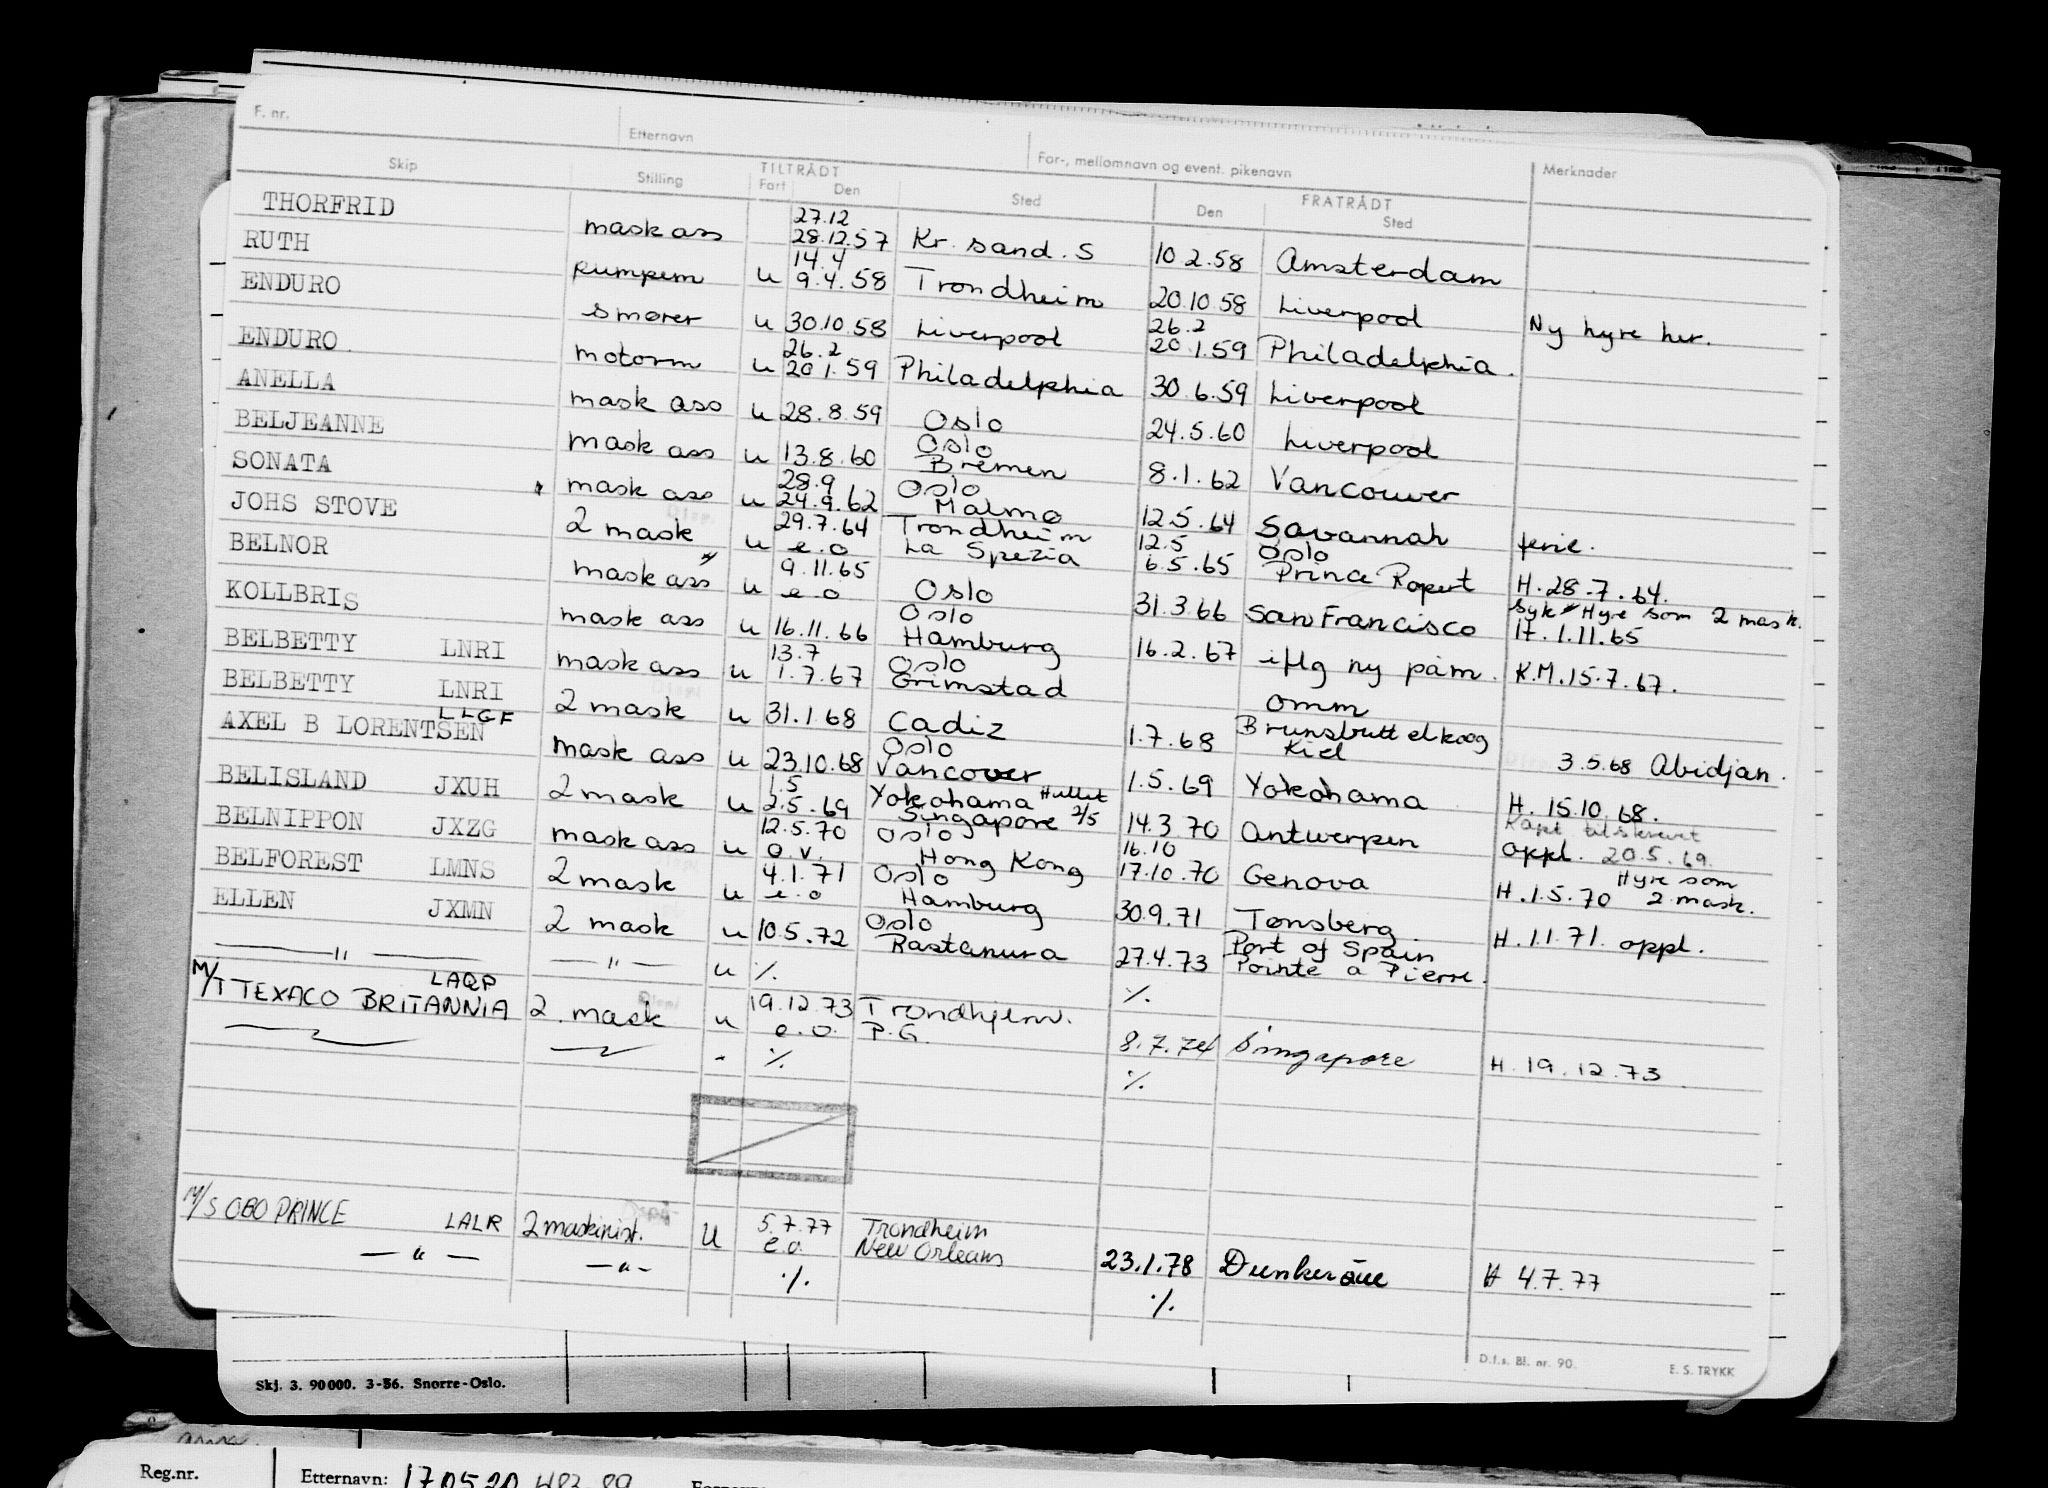 F. nr.
Etternavn
For-, mellomnavn og event. pikenavn
Merknader
Skip
Stilling
TILTRÅDT
Fart
Den
Sted
FRATRÅDT
Den
Sted
THORFRID mask ass 27.12 28.12.57 Kr. sand. S 10.2.58 Amsterdam
RUTH pumpem u 14.4 9.4.58 Trondheim 20.10.58 Liverpool Ny hyre her.
ENDURO smører u 30.10.58 Liverpool 26.2 20.1.59 Philadelphia.
ENDURO motorm u 26.2 20.1.59 Philadelphia 30.6.59 Liverpool
ANELLA mask ass u 28.8.59 Oslo 24.5.60 Liverpool
BELJEANNE mask ass u 13.8.60 Oslo Bremen 8.1.62 Vancouver
SONATA mask ass u 28.9 24.9.62 Oslo Malmø 12.5.64 Savannah ferie.
JOHS STOVE 2 mask u 29.7.64 e.o Trondheim La Spezia 12.5 6.5.65 Oslo Prince Rupert H. 28.7.64.
BELNOR mask ass u 9.11.65 e.o Oslo 31.3.66 San Francisco syk Hyre som 2 mask. H. 1.11.65
KOLLBRIS mask ass u 16.11.66 Oslo Hamburg 16.2.67 iflg ny påm. K.M. 15.7.67.
BELBETTY LNRI mask ass u 13.7 1.7.67 Oslo Grimstad omm
BELBETTY LNRI 2 mask u 31.1.68 Cadiz 1.7.68 Brunsbuttelkoog Kiel 3.5.68 Abidjan.
AXEL B LORENTSEN LLGF mask ass u 23.10.68 Oslo Vancover 1.5.69 Yokohama H. 15.10.68.
BELISLAND JXUH 2 mask u 1.5 2.5.69 Yokohama Hullet Singapore 2/5 14.3.70 Antwerpen Kapt tilskrevet oppl. 20.5.69.
BELNIPPON JXZG mask ass u 12.5.70 o.v. Oslo Hong Kong 16.10 17.10.70 Genova H. 1.5.70 Hyre som 2 mask.
BELFOREST LMNS 2 mask u 4.1.71 e.o Oslo Hamburg 30.9.71 Tønsberg H. 1.1.71. oppl.
ELLEN JXMN 2 mask u 10.5.72 Oslo Rastanura 27.4.73 Port of Spain Pointe a Pierre.
— " — — " — u %. %.
M/T TEXACO BRITANNIA LAQP 2. mask u 19.12.73 e.o. Trondhjem. P.G. 8.7.74 Singapore H. 19.12.73.
%. %.
M/S OBO PRINCE LALR 2 maskinist. U 5.7.77 e.o. Trondheim New Orleans 23.1.78 Dunkerque H 4.7.77
— " — — " — %. %.
D.f.s. Bl. nr. 90.
E. S. TRYKK
Skj. 3. 90000. 3-56. Snorre-Oslo.
Reg.nr.
Etternavn: 170520 483 89